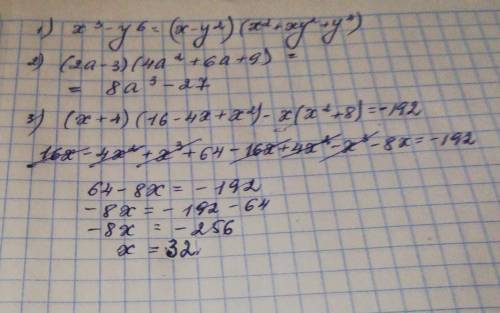 1) x³ - y⁶ = (x-y²)(x²+xy²+y⁴)
2) (2a-3)(4a²+6a+9) =
= 8a³-27
3) (x+4)(16-4x+x²)-x(x²+8)=-192
16x-4x²+x³+64-16x+4x²-x³-8x=-192
64-8x = -192
-8x = -192-64
-8x = -256
x = 32.